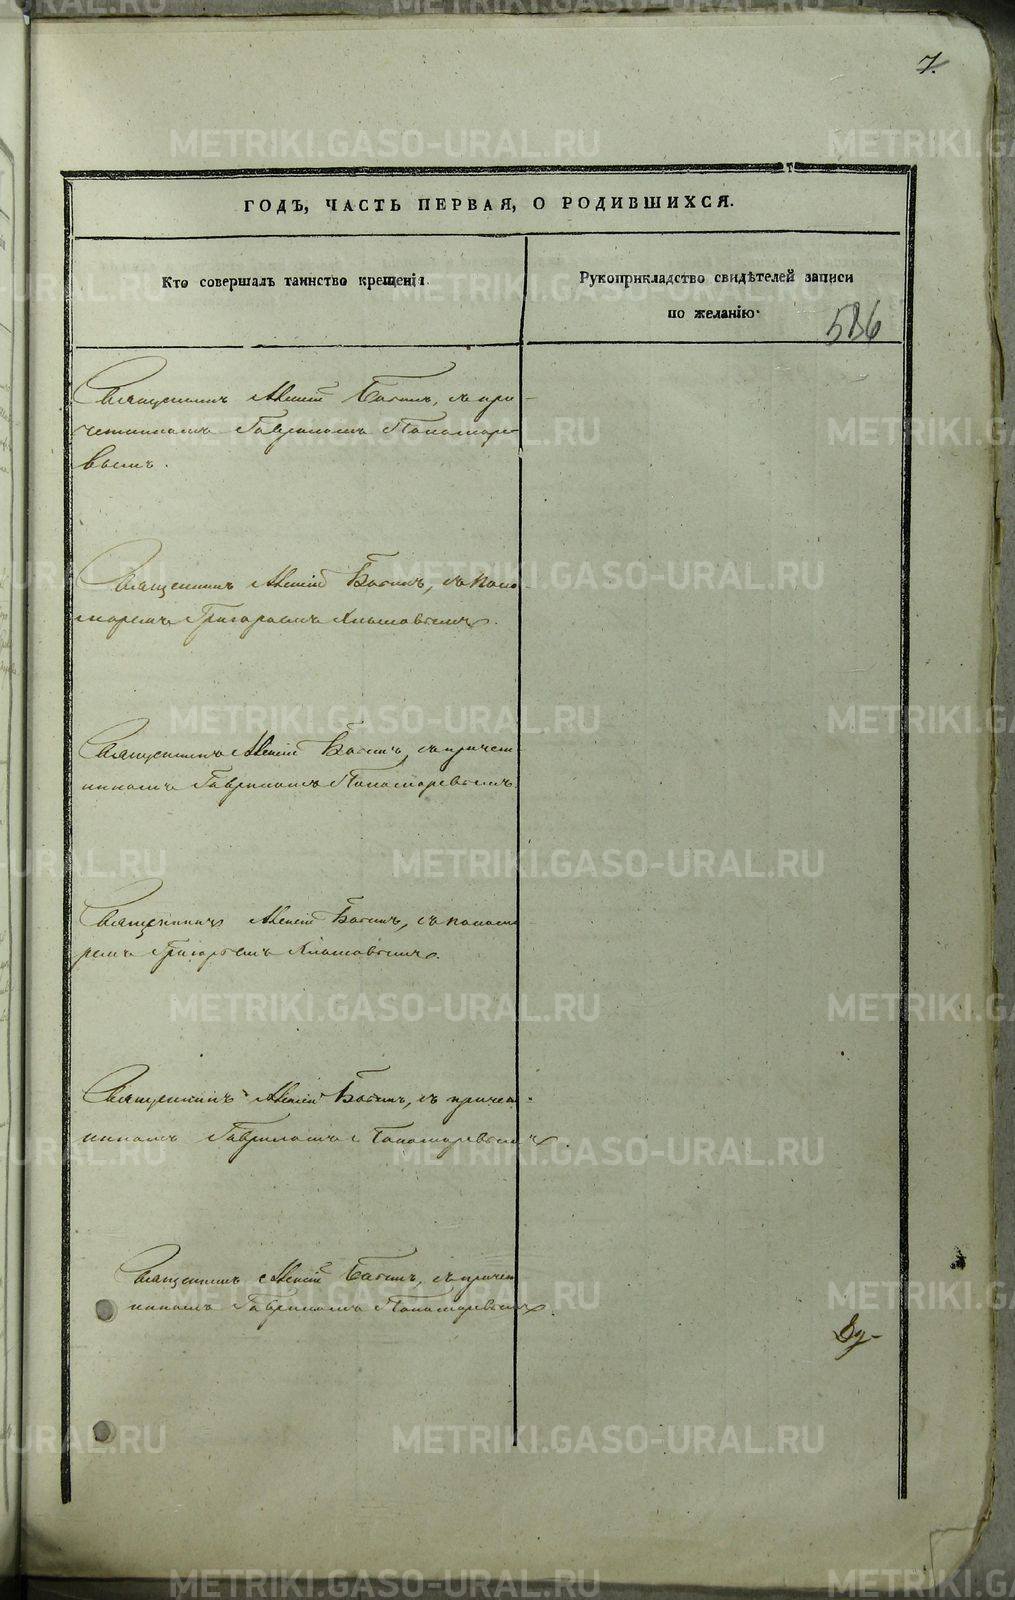 7.
ГОДЪ, ЧАСТЬ ПЕРВАЯ, О РОДИВШИХСЯ.
Кто совершалъ таинство крещенія.
Рукоприкладство свидѣтелей записи
по желанію.
586
Священникъ Алексій Богинъ, съ при-
четникомъ Гавриломъ Пономаре-
вымъ.
Священникъ Алексій Богинъ, съ поно-
маремъ Григорьемъ
Священникъ Алексій Богинъ, съ причет
никомъ Гавриломъ Пономаревымъ
Священникъ Алексій Богинъ, съ понома
ремъ Григорьемъ
Священникъ Алексій Богинъ, съ причет-
никомъ Гавриломъ Пономаревымъ.
Священникъ Алексій Богинъ, съ причет
никомъ Гавриломъ Пономаревымъ.
METRIKI.GASO-URAL.RU